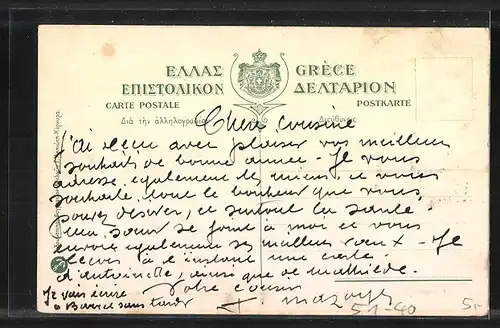 ΕΛΛΑΣ GRÈCE
ΕΠΙΣΤΟΛΙΚΟΝ ΔΕΛΤΑΡΙΟΝ
CARTE POSTALE POSTKARTE
Διὰ τὴν ἀλληλογραφίαν Διεύθυνσις
Chère cousine
J'ai reçu avec plaisir vos meilleurs
souhaits de bonne année - Je vous
adresse également les miens et vous
souhaite tout le bonheur que vous
pouvez désirer, et surtout la santé -
ma sœur se joint à moi et vous
envoie également ses meilleurs vœux - Je
reçois à l'instant une carte
d'Antoinette, ainsi que de Mathilde.
Je vais écrire Votre cousin
à sans tarder
5-1-40
5.-